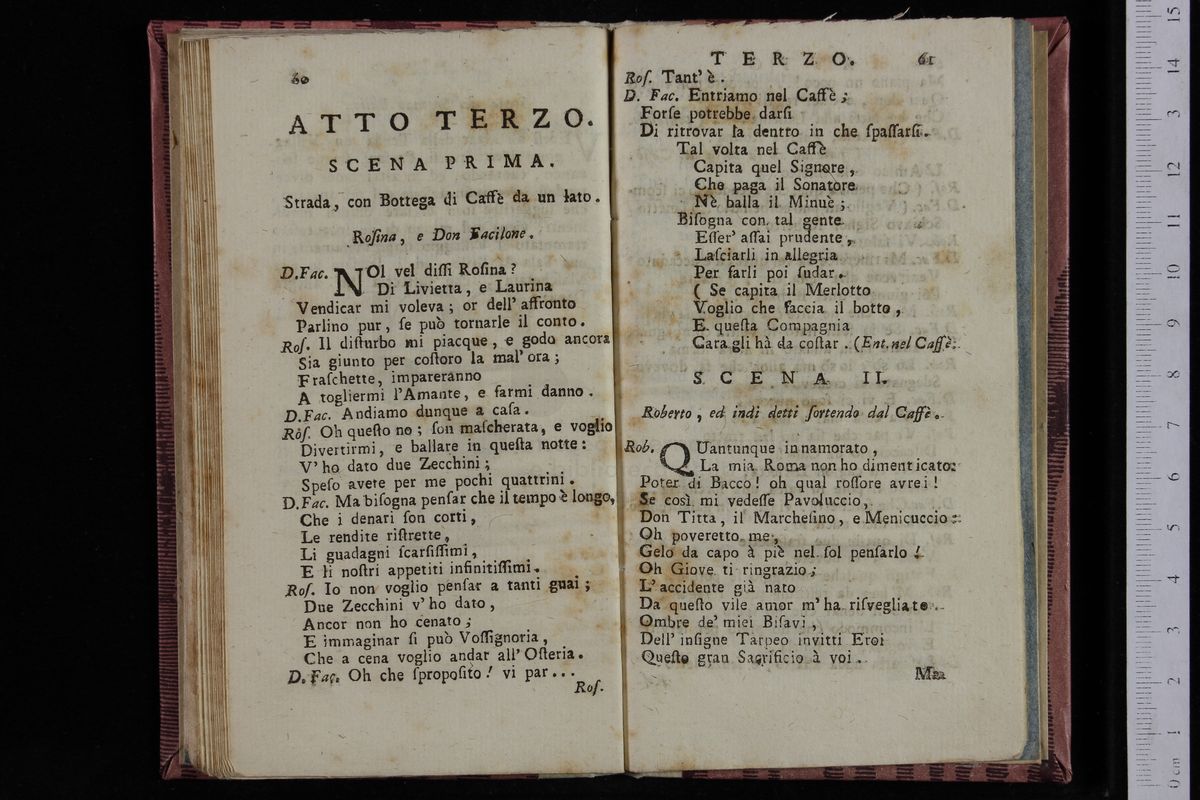 60
ATTO TERZO.
SCENA PRIMA.
Strada, con Bottega di Caffè da un lato.
Roſina, e Don Facilone.
D.Fac. NOl vel diſſi Roſina?
Di Livietta, e Laurina
Vendicar mi voleva; or dell' affronto
Parlino pur, ſe può tornarle il conto.
Roſ. Il diſturbo mi piacque, e godo ancora
Sia giunto per coſtoro la mal' ora;
Fraſchette, impareranno
A togliermi l'Amante, e farmi danno.
D.Fac. Andiamo dunque a caſa.
Roſ. Oh queſto no; ſon maſcherata, e voglio
Divertirmi, e ballare in queſta notte:
V' ho dato due Zecchini;
Speſo avete per me pochi quattrini.
D.Fac. Ma biſogna penſar che il tempo è longo,
Che i denari ſon corti,
Le rendite riſtrette,
Li guadagni ſcarſiſſimi,
E li noſtri appetiti infinitiſſimi.
Roſ. Io non voglio penſar a tanti guai;
Due Zecchini v' ho dato,
Ancor non ho cenato;
E immaginar ſi può Voſſignoria,
Che a cena voglio andar all' Oſteria.
D. Fac. Oh che ſpropoſito! vi par...
Roſ.
TERZO. 61
Roſ. Tant' è.
D. Fac. Entriamo nel Caffè;
Forſe potrebbe darſi
Di ritrovar la dentro in che ſpaſſarſi.
Tal volta nel Caffè
Capita quel Signore,
Che paga il Sonatore
Nè balla il Minuè;
Biſogna con tal gente
Eſſer' aſſai prudente,
Laſciarli in allegria
Per farli poi ſudar.
( Se capita il Merlotto
Voglio che faccia il botto,
E queſta Compagnia
Cara gli hà da coſtar. (Ent. nel Caffè.
SCENA II.
Roberto, ed indi detti ſortendo dal Caffè.
Rob. QUantunque innamorato,
La mia Roma non ho dimenticato:
Poter di Bacco! oh qual roſſore avrei!
Se così mi vedeſſe Pavoluccio,
Don Titta, il Marcheſino, e Menicuccio:
Oh poveretto me,
Gelo da capo à piè nel ſol penſarlo!
Oh Giove ti ringrazio;
L' accidente già nato
Da queſto vile amor m' ha riſvegliato.
Ombre de' miei Biſavi,
Dell' inſigne Tarpeo invitti Eroi
Queſto gran Sagrificio à voi.
Ma